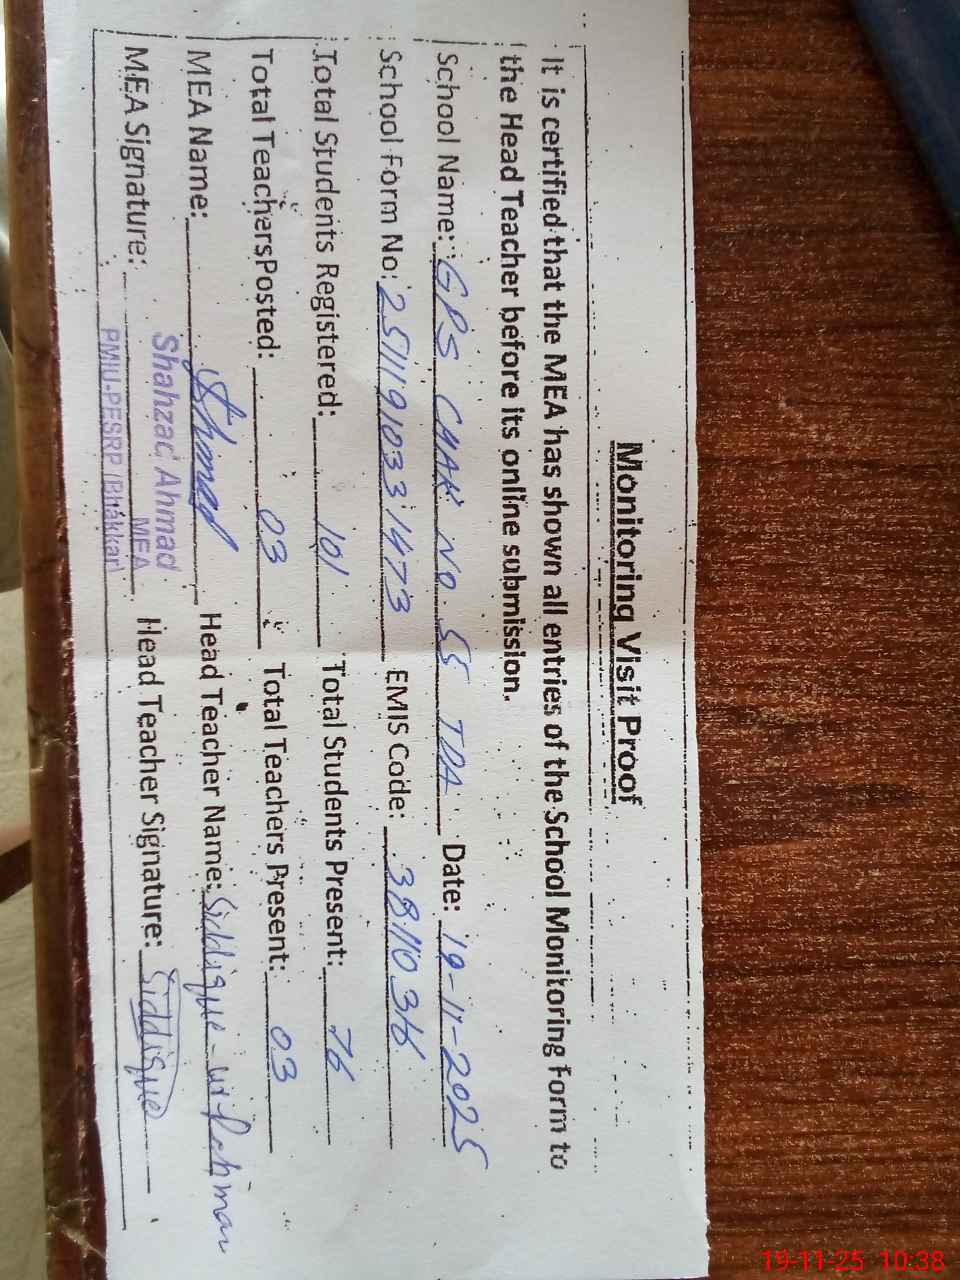 Monitoring Visit Proof
It is certified that the MEA has shown all entries of the School Monitoring Form to
the Head Teacher before its online submission.
School Name: GPS CHAK NO 55 TDA Date: 19-11-2025
School Form No: 25111910331473 EMIS Code: 38110316
Total Students Registered: 101 Total Students Present: 76
Total Teachers Posted: 03 Total Teachers Present: 03
MEA Name: Head Teacher Name: Siddique-ur-Rahman
MEA Signature: Head Teacher Signature: Siddique
Shahzad Ahmad
MEA
PMIU-PESRP (Bhakkar)
19-11-25 10:38